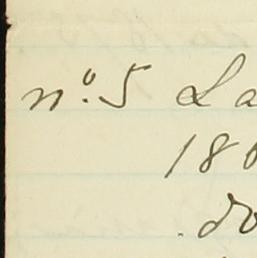 nº. 5 La
18
do